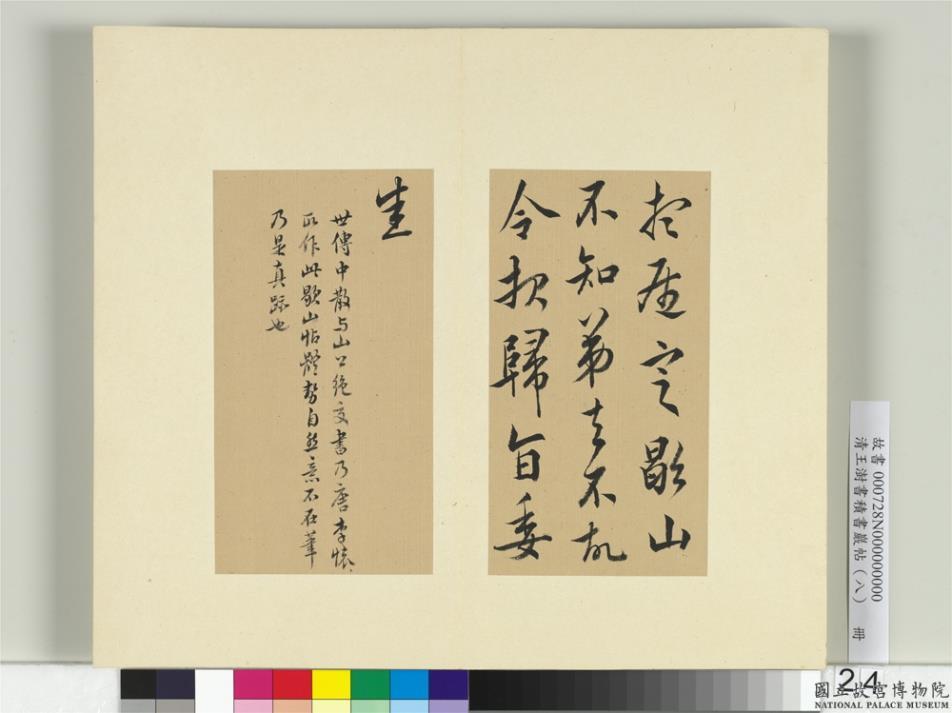 定歇山
不知弟去不故
令報歸旨委
生
世傳中散与山公絕交書乃唐李懷
所作此歇山帖體勢自然意不在筆
乃是真跡也
故書 000728N000000000
清王澍書積書巖帖（八） 冊
24
國立故宮博物院
NATIONAL PALACE MUSEUM